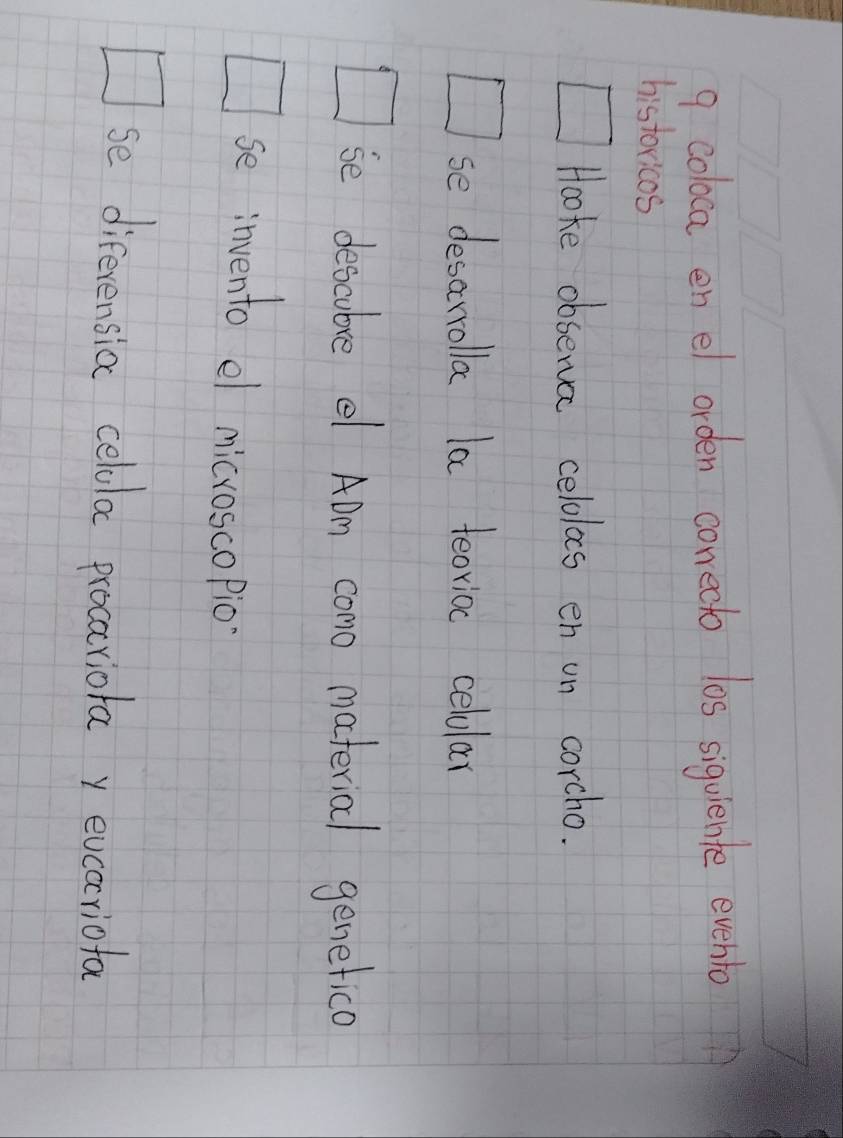 9 coloca en el orden correcto los siguiente evento
historicos
Hooke observa celulas en un corcho.
se desarrolla la teoria celular
se descubre el ADn como material genetico
se invento el microscopio.
se diferensia celula procariota y eucariota